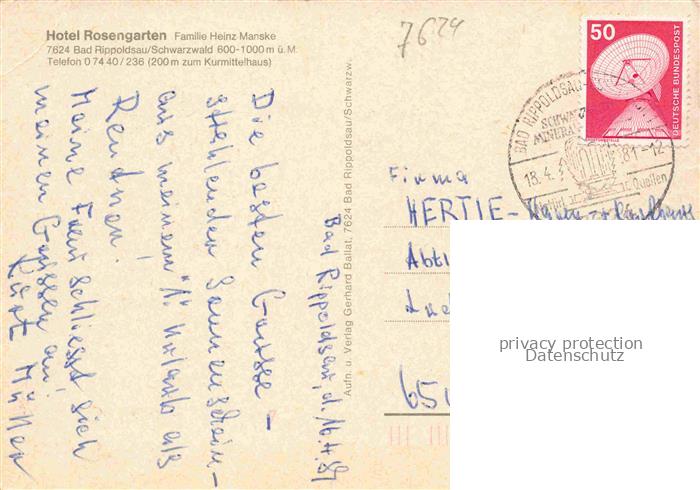 Hotel Rosengarten Familie Heinz Manske
7624 Bad Rippoldsau/Schwarzwald 600-1000 m ü. M.
Telefon 0 74 40 / 236 (200 m zum Kurmittelhaus)
7624
50
DEUTSCHE BUNDESPOST
BAD RIPPOLDSAU
18.4. 81-12
Quellen
Bad Rippoldsau, d. 16.4.81
Die besten Grüsse –
strahlenden Sonnenschein –
aus meinem "1." Urlaub als
Rentner.
Meine Frau schliesst sich
meinen Grüssen an!
Kurt
Aufn. u. Verlag Gerhard Ballat, 7624 Bad Rippoldsau/Schwarzw.
Firma
HERTIE-
Abt.
650
privacy protection
Datenschutz